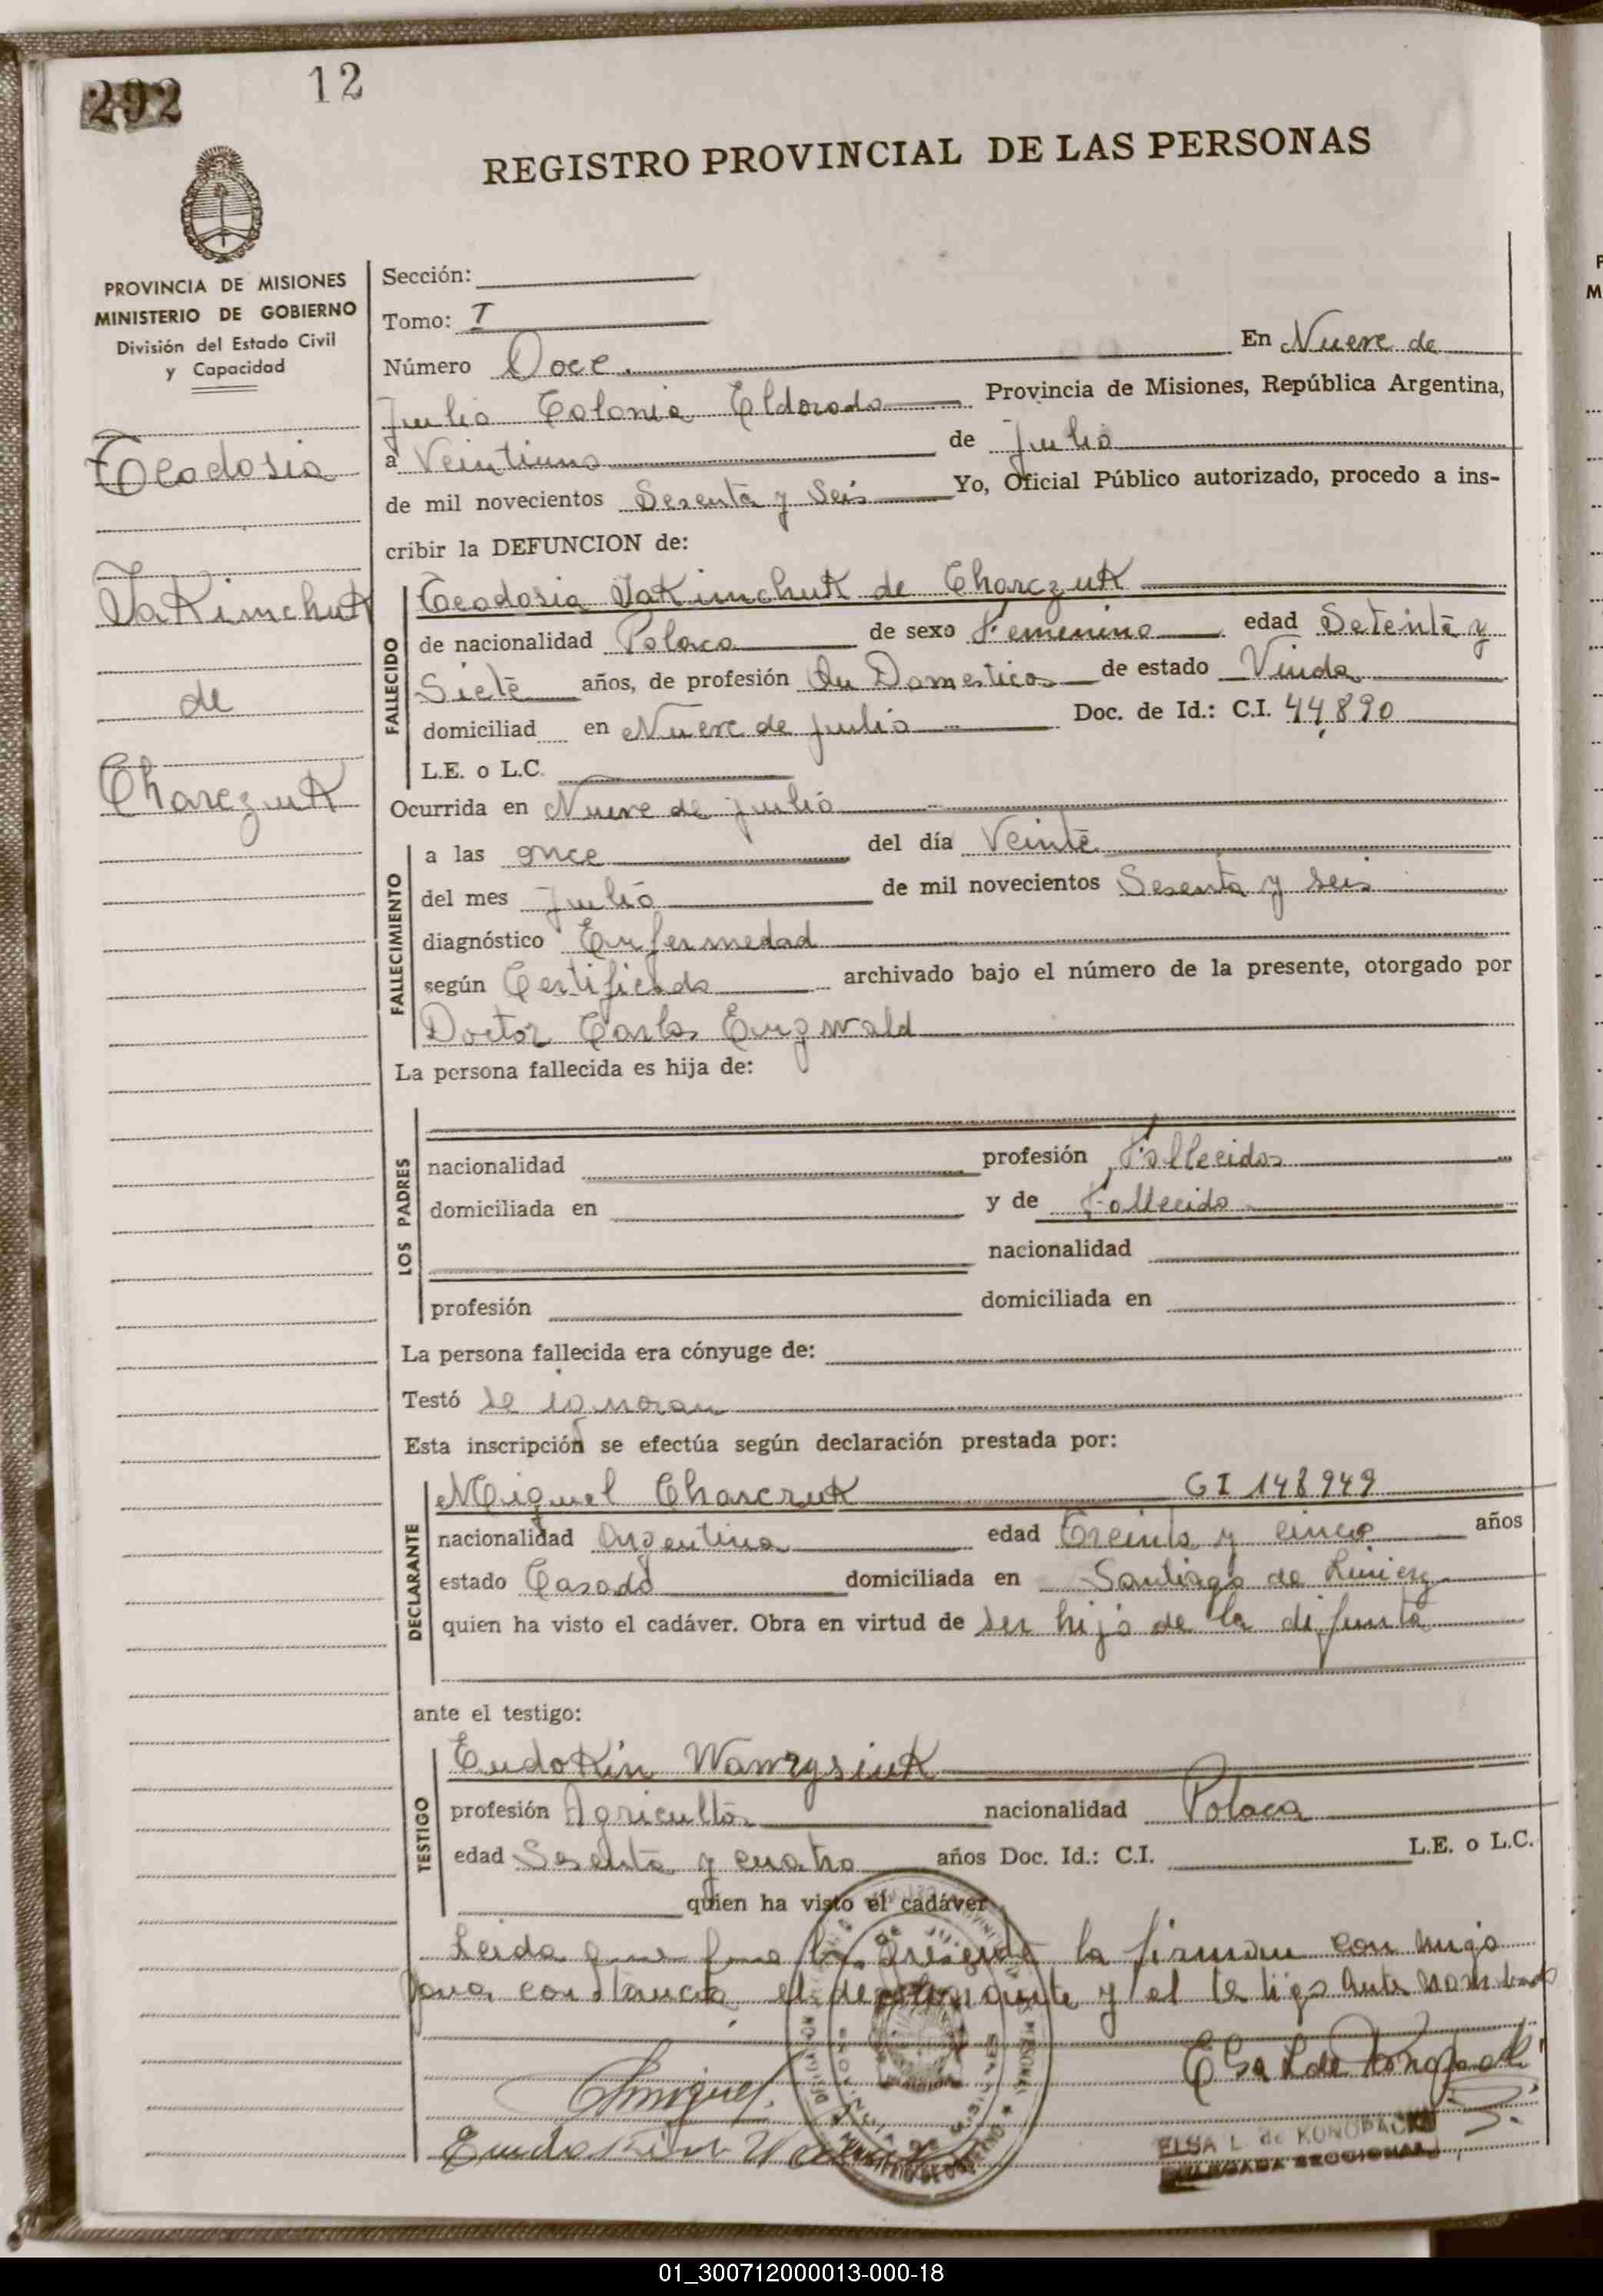 292 12
REGISTRO PROVINCIAL DE LAS PERSONAS
PROVINCIA DE MISIONES
MINISTERIO DE GOBIERNO
División del Estado Civil
y Capacidad
Teodosia
Yakimchuk
de
Charczuk
Sección:
Tomo: I
Número Doce. En Nueve de
Julio Colonia Eldorado Provincia de Misiones, República Argentina,
a Veintiuno de Julio
de mil novecientos Sesenta y Seis Yo, Oficial Público autorizado, procedo a ins-
cribir la DEFUNCION de:
FALLECIDO
Teodosia Yakimchuk de Charczuk
de nacionalidad Polaca de sexo Femenino edad Setenta y
Siete años, de profesión Qu Domesticos de estado Viuda
domiciliad en Nueve de Julio Doc. de Id.: C.I. 44,890
L.E. o L.C.
Ocurrida en Nueve de julio
FALLECIMIENTO
a las once del día Veinte
del mes Julio de mil novecientos Sesenta y seis
diagnóstico Enfermedad
según Certificado archivado bajo el número de la presente, otorgado por
Doctor Carlos
La persona fallecida es hija de:
LOS PADRES
nacionalidad profesión Fallecidos
domiciliada en y de Fallecido
nacionalidad
profesión domiciliada en
La persona fallecida era cónyuge de:
Testó se ignoran
Esta inscripción se efectúa según declaración prestada por:
DECLARANTE
Miguel Charczuk CI 148949
nacionalidad Argentina edad Treinta y cinco años
estado Casado domiciliada en Santiago de Linierz
quien ha visto el cadáver. Obra en virtud de ser hijo de la difunta
ante el testigo:
TESTIGO
Eudokin Wawrysiuk
profesión Agricultor nacionalidad Polaca
edad Sesenta y cuatro años Doc. Id.: C.I. L.E. o L.C.
quien ha visto el cadáver
Leida que fue la presente la firman con migo
para constancia el declarante y el testigo ante nombrado
Elsa L de Konopacki
Eudokin
ELSA L. de KONOPACKI
DELEGADA SECCIONAL
01_300712000013-000-18